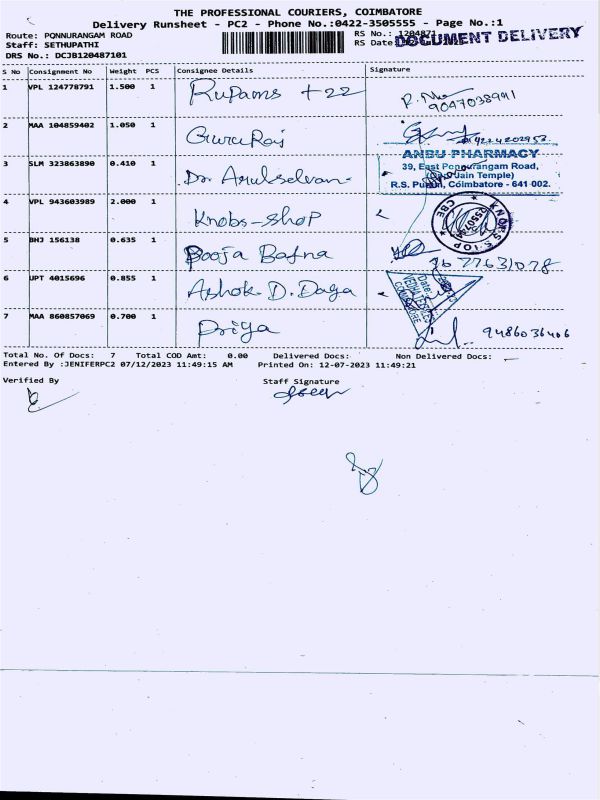 THE PROFESSIONAL COURIERS, COIMBATORE
Delivery Runsheet - PC2 - Phone No.:0422-3505555 - Page No.:1
Route: PONNURANGAM ROAD RS No.: 1204871
Staff: SETHUPATHI RS Date
DOCUMENT DELIVERY
DRS No.: DCJB120487101
S No Consignment No Weight PCS Consignee Details Signature
1 VPL 124778791 1.500 1 Rupams +22
9047038941
2 MAA 104859402 1.050 1 GuruRaj
ANBU PHARMACY
39, East Ponnurangam Road,
(Opp. Jain Temple)
R.S. Puram, Coimbatore - 641 002.
3 SLM 323863890 0.410 1 Dr. Arulselvan
4 VPL 943603989 2.000 1 Knobs-shop
5 BHJ 156138 0.635 1 Pooja Bafna
6 UPT 4015696 0.855 1 Ashok. D. Daga
Date:
COIMBATORE
7 MAA 860857069 0.700 1 Priya
9486036406
Total No. Of Docs: 7 Total COD Amt: 0.00 Delivered Docs: Non Delivered Docs:
Entered By :JENIFERPC2 07/12/2023 11:49:15 AM Printed On: 12-07-2023 11:49:21
Verified By Staff Signature